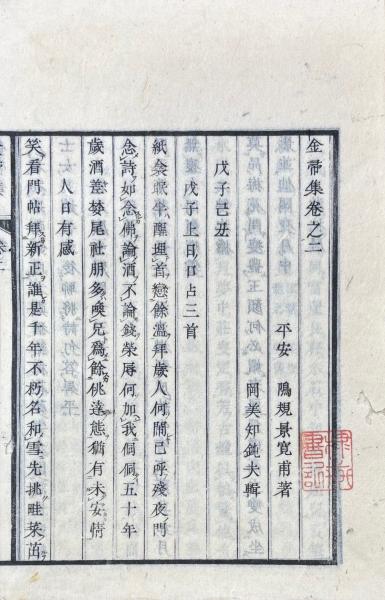 金帚集卷之二
平安 隝規景寬甫著
岡美知鈍夫輯
戊子己丑
戊子上日口占三首
紙衾眠半醒埋首戀餘溫拜歲人何鬧已呼殘夜門
念詩如念佛論酒不論錢榮辱何如我侗侗五十年
歲酒惹婪尾社朋多喚兄爲餘佻達態猶有未安情
人日有感
笑看門帖拜新正誰是千年不朽名和雪先挑畦菜茁